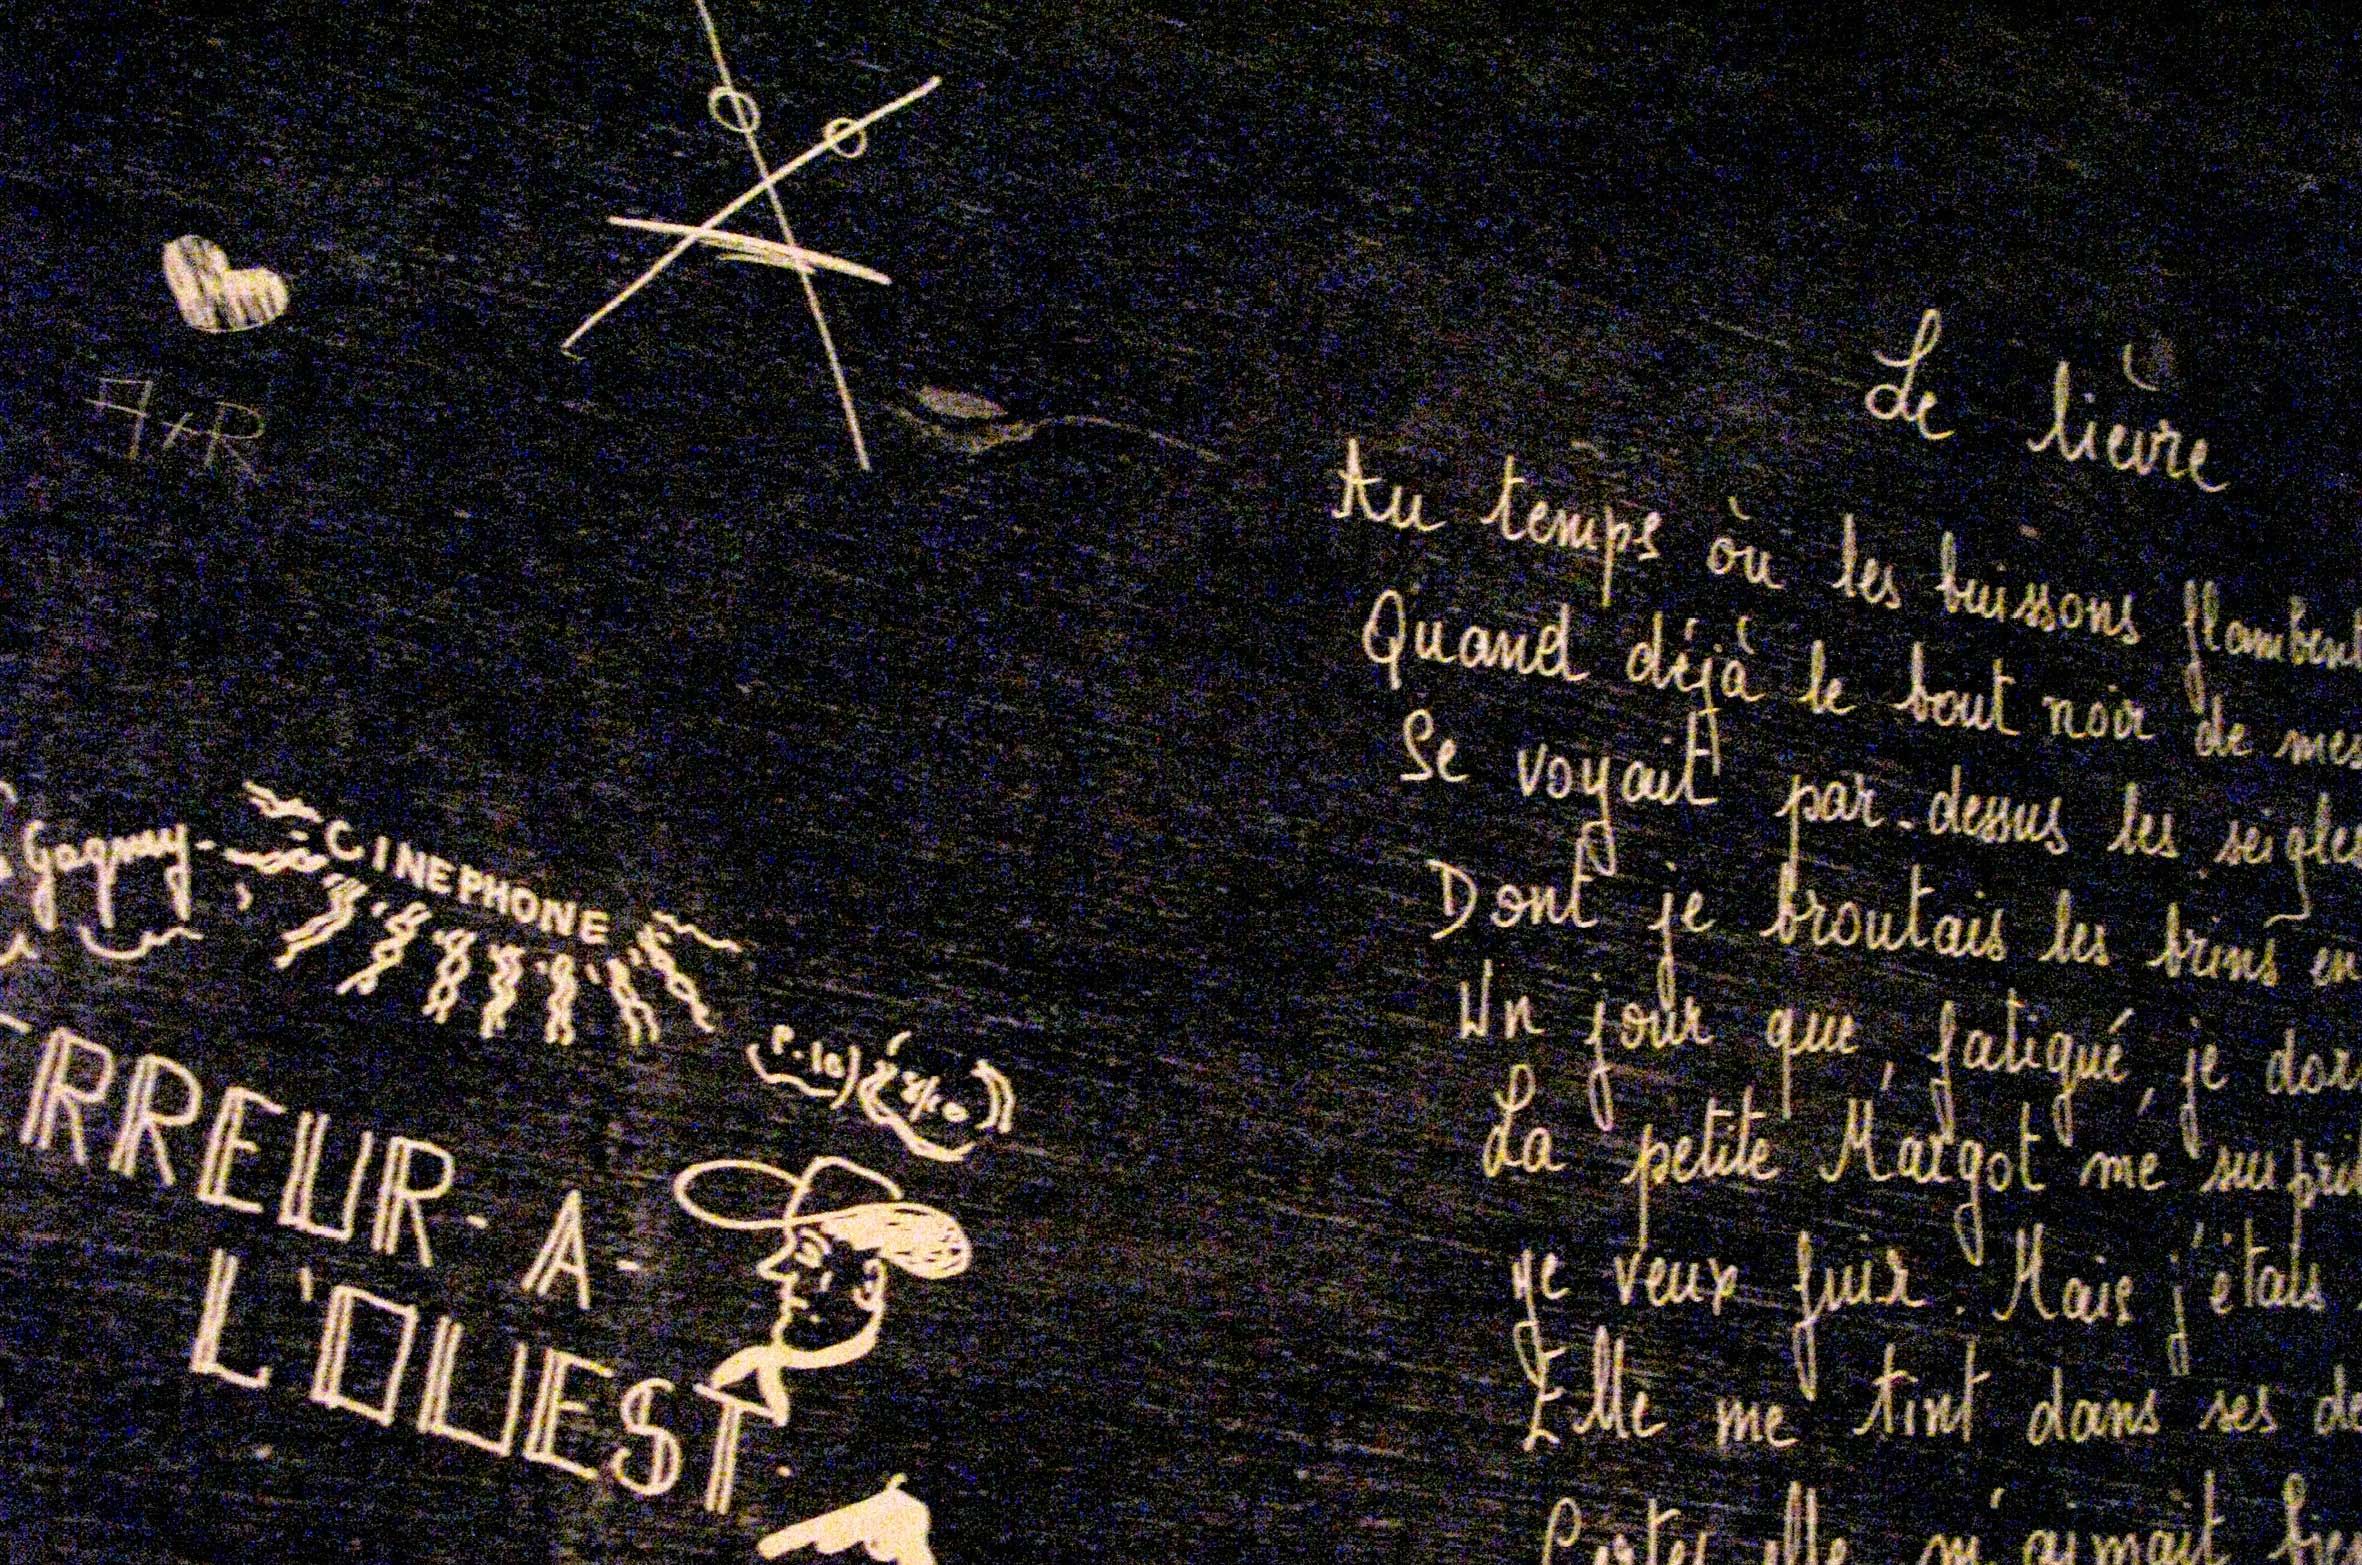 A+R
Gagnay-
CINEPHONE
RREUR - A -
L'OUEST
Le lièvre
Au temps où les buissons flambent
Quand déjà le bout noir de mes
Se voyait par-dessus les seigles
Dont je broutais les brins en
Un jour que, fatigué, je dor
La petite Margot me surprit
Je veux fuir. Mais j'étais
Elle me tint dans ses de
Certes elle m'aimait bien